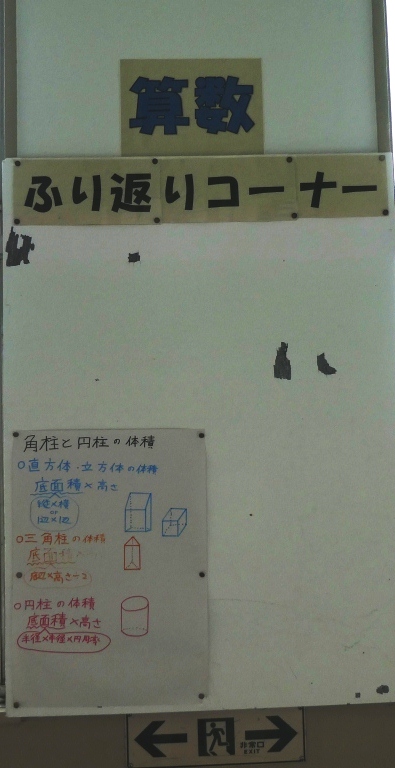 算数
ふり返りコーナー
角柱と円柱の体積
○直方体・立方体の体積
底面積×高さ
縦×横
or
辺×辺
○三角柱の体積
底面積
底辺×高さ÷2
○円柱の体積
底面積×高さ
半径×半径×円周率
非常口
EXIT